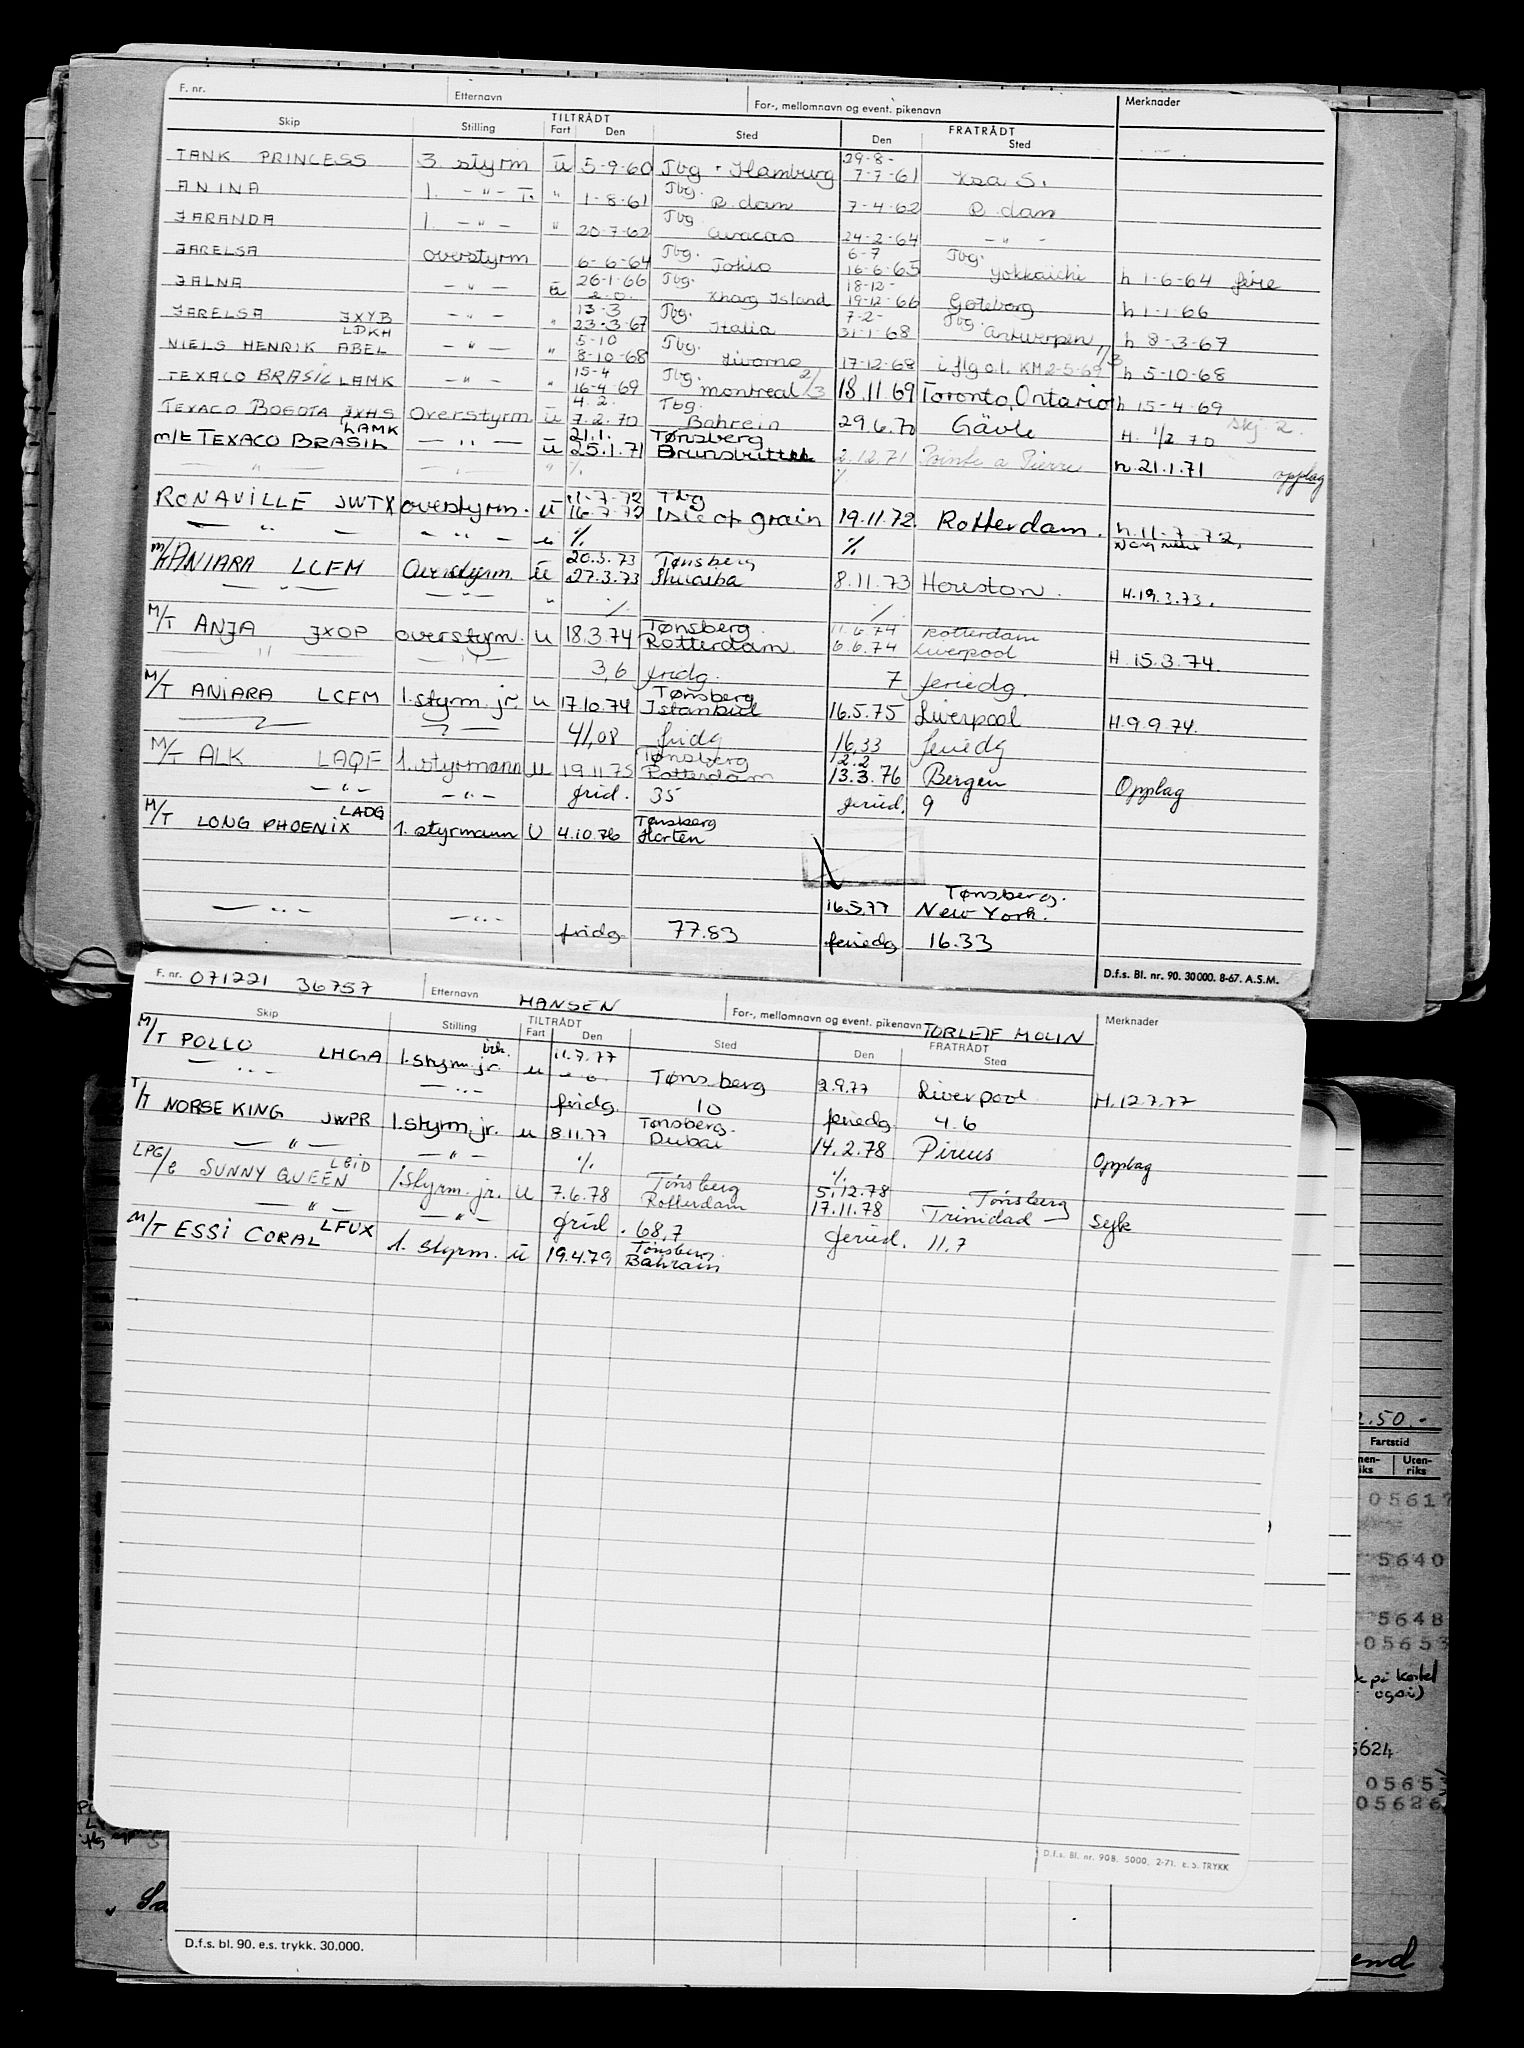 F. nr. Etternavn For-, mellomnavn og event. pikenavn Merknader
Skip Stilling TILTRÅDT Fart Den Sted FRATRÅDT Den Sted
TANK PRINCESS 3. styrm u 5-9-60 Tbg. Hamburg 29-8- 7-7-61
ANINA 1. - " - T. " 1-8-61 Tbg. R.dam 7-4-62 R.dam
JARANDA 1. - " - " 20-7-62 Tbg Curacao 24-2-64 - " -
JARELSA overstyrm 6-6-64 Tbg. Tokio 6-7 16-6-65 Tbg. Yokkaichi h 1-6-64 ferie
JALNA - " - u 26-1-66 2.0. Tbg. Kharg Island 18-12- 19-12-66 Göteborg h 1-1-66
JARELSA JXYB - " - " 13-3 23-3-67 Tbg. Italia 7-2- 31-1-68 Tbg. Antwerpen h 8-3-67
NIELS HENRIK ABEL LDKH - " - " 5-10 8-10-68 Tbg. Livorno 17-12-68 i flg o.l. KM 2-5-69 h 5-10-68
TEXACO BRASIL LAMK - " - " 15-4 16-4-69 Tbg. montreal 2/3 18.11.69 Toronto, Ontario 1/3 h 15-4-69
TEXACO BOGOTA JXHS overstyrm u 4.2. 7.2.70 Tbg. Bahrein 29.6.70 Gävle H. 1/2 70 Skj. 2.
m/t TEXACO BRASIL LAMK — " — u 21.1. 25.1.71 Tønsberg Brunsbuttel 2.12.71 Pointe a Pierre h. 21.1.71 opplag
— " — — " — " %
RONAVILLE JWTX overstyrm. u 11-7-72 16.7.72 Tbg Isle of grain 19.11.72 Rotterdam. h. 11-7-72,
— " — - " - u % %
M/T ANIARA LCFM Overstyrm. u 20.3.73 27.3.73 Tønsberg Shuaiba 8.11.73 Houston. H.19.3.73.
— " — — " — " % %
M/T ANJA JXOP overstyrm. u 18.3.74 Tønsberg. Rotterdam 11.6.74 6.6.74 Rotterdam Liverpool H. 15.3.74.
— " — — " — 3,6 fridg. 7 feriedg.
M/T ANIARA LCFM 1.styrm. jr. u 17.10.74 Tønsberg Istanbul 16.5.75 Liverpool H.9.9.74.
— " — — " — 41,08 fridg 16,33 feriedg
M/T ALK LAQF 1. styrmann u 19.11.75 Tønsberg Rotterdam 12.2 13.3.76 Bergen Opplag
— " — — " — frid. 35 feried. 9
M/T LONG PHOENIX LADG 1. styrmann U 4.10.76 Tønsberg Horten
16.5.77 Tønsberg. New York.
— " — — " — fridg 77.83 feriedg 16.33
D.f.s. Bl. nr. 90. 30000. 8-67. A.S.M.
F. nr. 071221 36757 Etternavn HANSEN For-, mellomnavn og event. pikenavn TORLEIF MOLIN Merknader
Skip Stilling TILTRÅDT Fart Den Sted FRATRÅDT Den Sted
M/T POLLO LHGA 1.styrm. jr. u 11.7.77 Tønsberg 2.9.77 Liverpool H.12.7.77
— " — — " — fridg. 10 feriedg 4.6
T/T NORSE KING JWPR 1.styrm. jr. u 8.11.77 Tønsberg. Dubai 14.2.78 Pireus Opplag
— " — — " — % %
LPG/C SUNNY QUEEN LEID 1.styrm. jr. u 7.6.78 Tønsberg Rotterdam 5.12.78 17.11.78 Tønsberg Trinidad Syk
— " — — " — frid. 68,7 feried. 11.7
M/T ESSI CORAL LFUX 1. styrm. u 19.4.79 Tønsberg. Bahrain
D.f.s. Bl. nr. 908. 5000. 2-71. e.s. TRYKK
D.f.s. bl. 90. e.s. trykk. 30.000.
2.50.-
Fartstid
Uten-riks
05617
5640
5648
05653
på kortet også)
5624
05653
05626